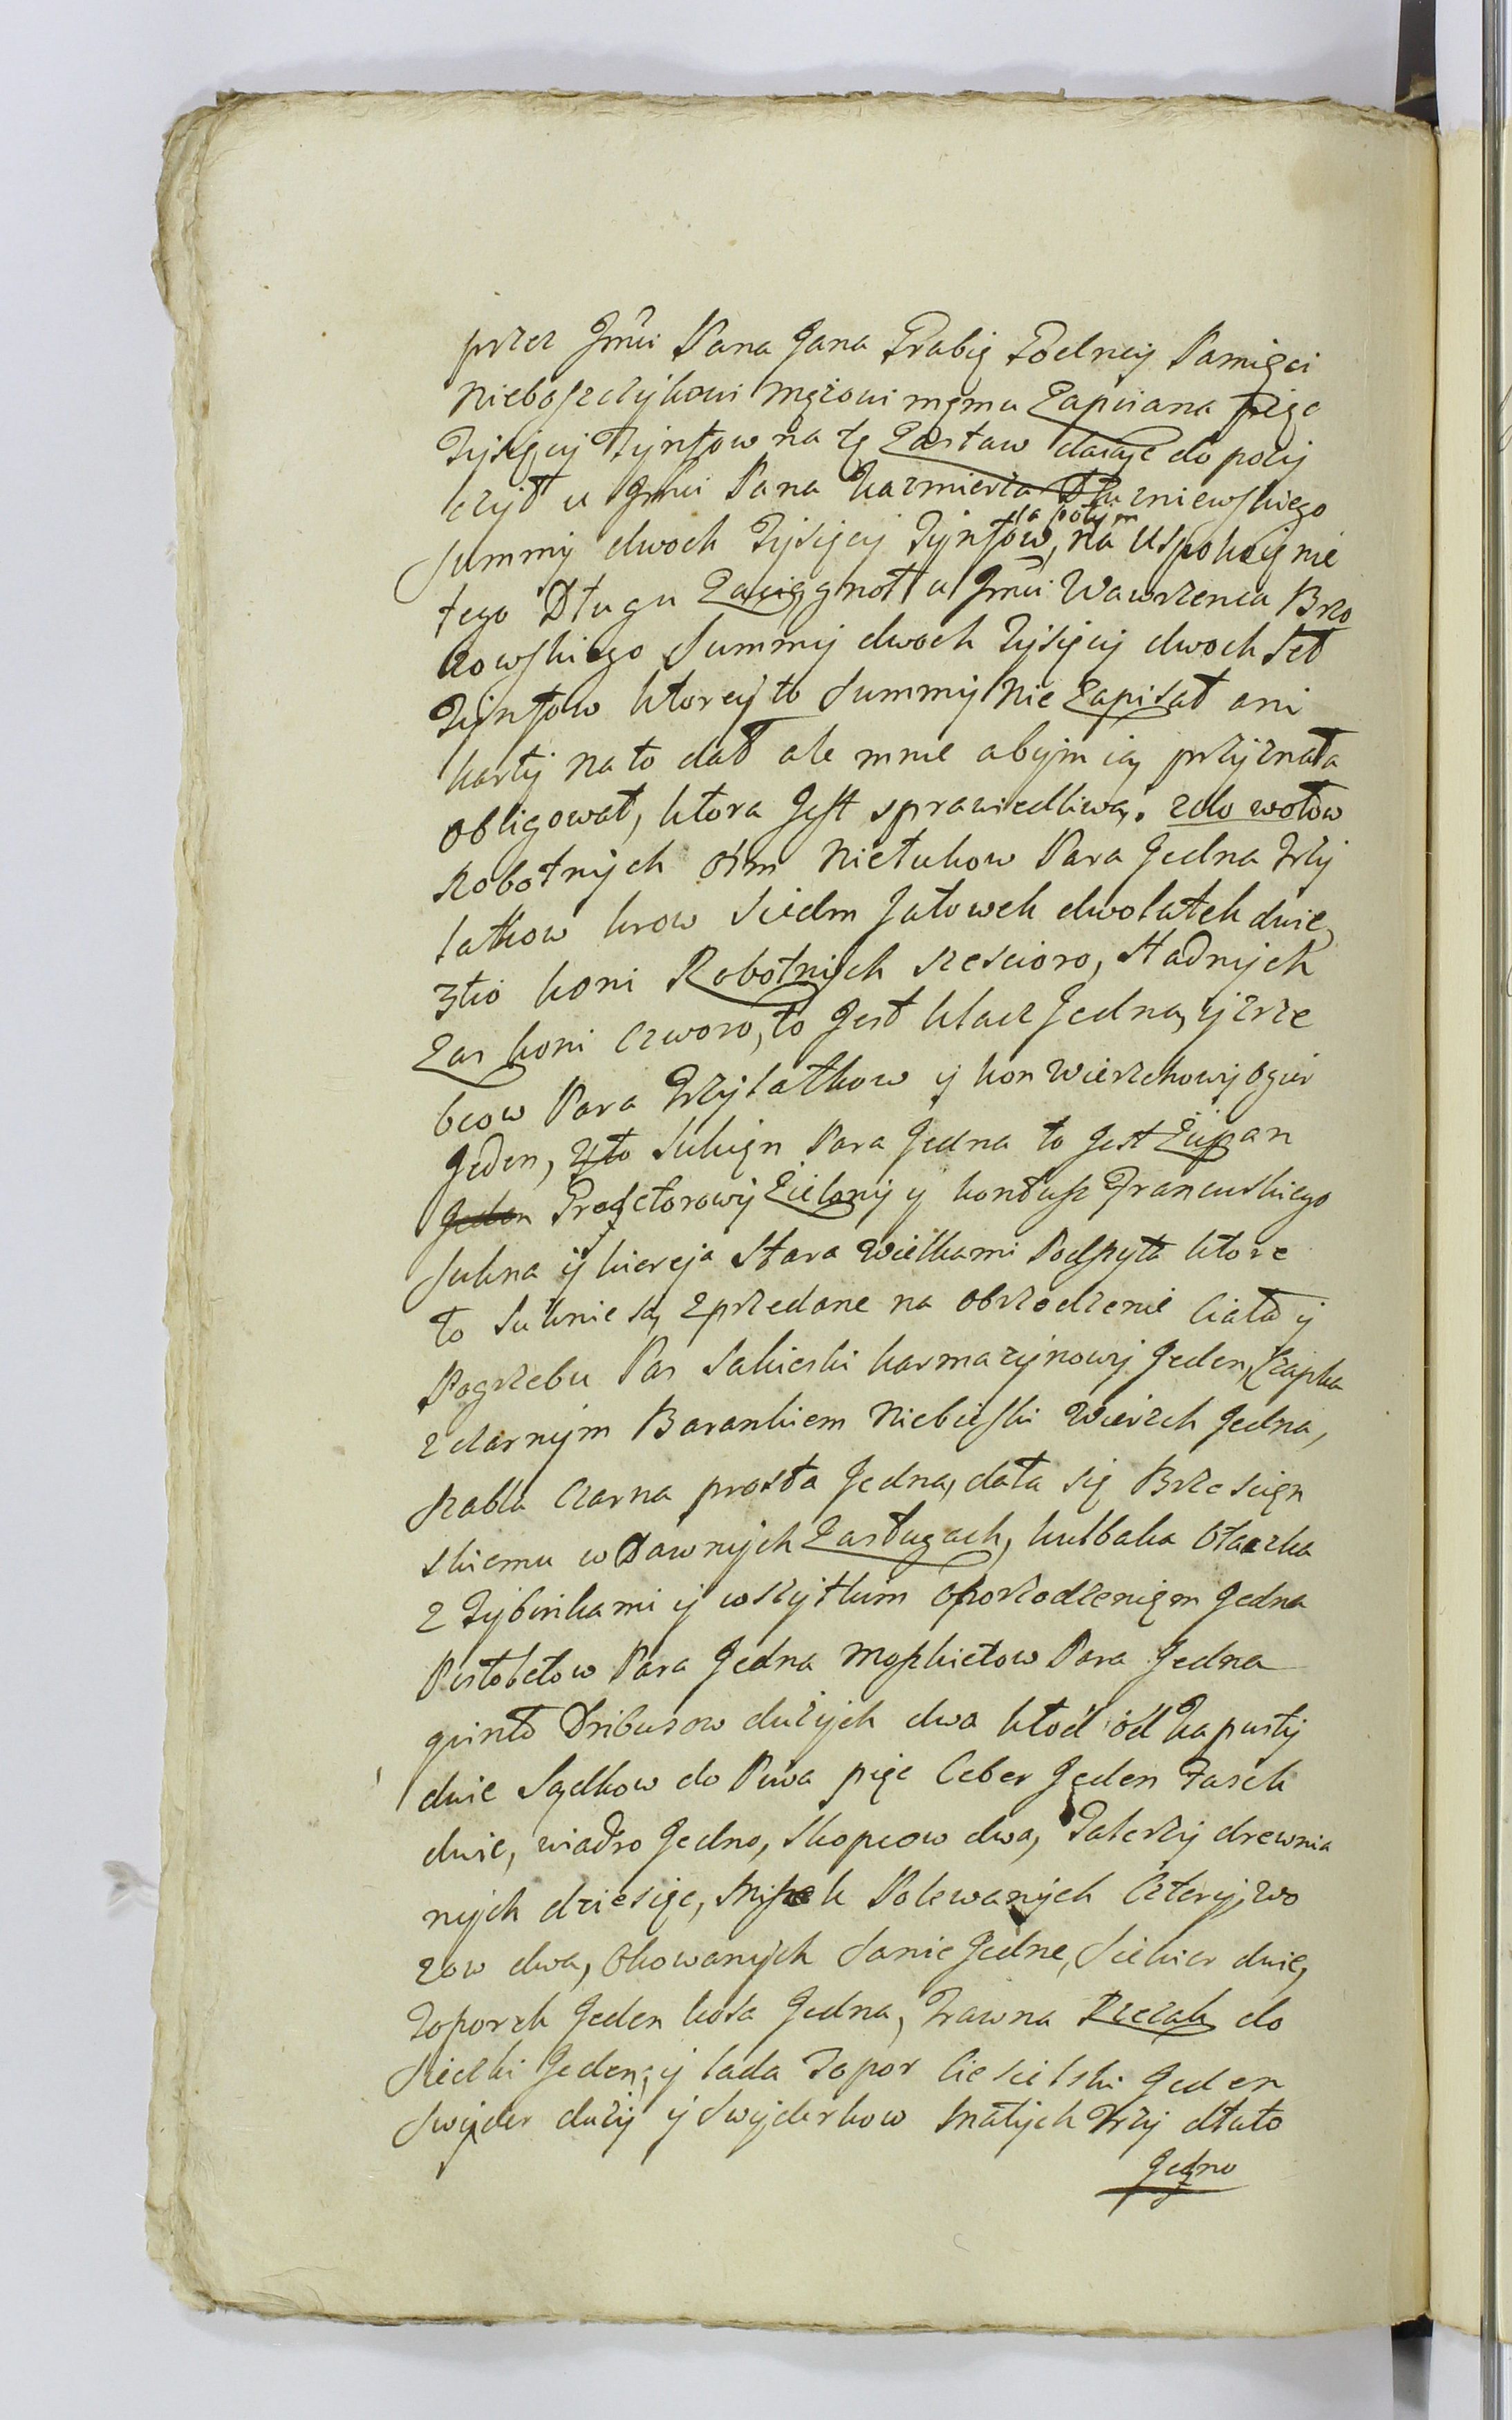 przez Jmći Pana Jana Grabię Godney Pamięci
Nieboszczykowi Mężowi memu Zapisana pięc
Tysięcy Tynfow na tę Zastaw daiąc do poży
czył u Jmći Pana Kazmierza Dłuzniewskiego
Summy dwoch Tysięcy Tynfow, a potym na Uspokoięnie
tego Długu Zaciągnoł u Jmći Wawrzenca Brzo
zowskiego Summy dwoch Tysięcy dwoch Set
Tynfow ktorey to Summy nie Zapisał ani
karty na to dał ale mnie abym ią przyznała
obligował, ktora Jest sprawiedliwa. zdo wołow
Robotnych osm Nietukow Para Jedna Trzy
latkow krow Siedm Jałowek dwolatek dwie,
zto koni Robotnych szescioro, Stadnych
Zas koni czworo, to Jest klacz Jedna, y zrze
bcow Para Trzylatkow y kon wierzchowy Ogier
Jeden, zto Sukięn Para Jedna to Jest Zupan
Jeden Proszetorowy Zielony y kontusz Francuskiego
Sukna y kiereja Stara Wilkami Podszyta ktore
to Suknie są zprzedane na obrzodzenie Ciała y
Pogrzebu Pas Sakieski karmazynowy Jeden, Czapka
z Czarnym Barankiem Niebieski Wierzch Jedna,
Szabla Czarna prosta Jedna, dała się Brzescięn
skiemu w Dawnych Zasługach, kulbaka Otarzka
z Tybinkami y wszytkim oporzodzenięm Jedna
Pistoletow Para Jedna Moszkietow Para Jedna
gwint Dribusow dużych dwa kłod od kapusty
dwie Sądkow do Piwa pięc Ceber Jeden Fasek
dwie, wiadro Jedno, Skopcow dwa, Talerzy drewnia
nych dziesięc, Misek Polewanych Cztery, wo
zow dwa, Okowanych Sanie Jedne, Siekier dwie,
Toporek Jeden kosa Jedna, Trawna Rzezak do
Sieczki Jeden, y lada Topor Ciesielski Jeden
Swyder duży y Swyderkow Małych Trzy dłuto
Jedno